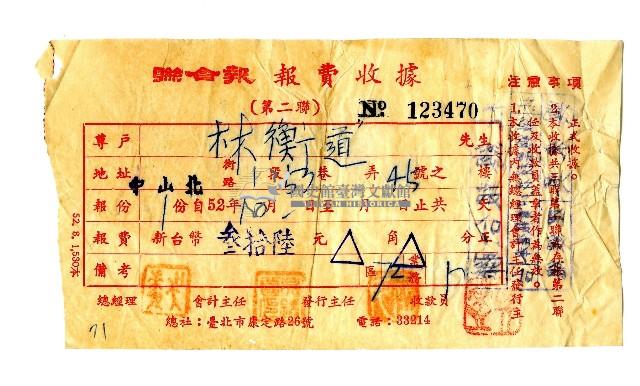 聯合報 報費收據
(第二聯) № 123470
尊戶 林衡道 先生
地址 中山北 街路 段 53 巷 弄 46 號之 樓
報份 1 份自52年10月 日至 月 止共
報費 新台幣 叁拾陸 元 角 分正
備考 區 72 業務
總經理 會計主任 發行主任 收款員
總社:臺北市康定路26號 電話:33214
注意事項
1.本收據內無總經理會計主任發行主
任及收款員蓋章者作為無效。
2.本收據共三聯
正式收據。
52. 8. 1,530本
71
國史館臺灣文獻館
TAIWAN HISTORICA